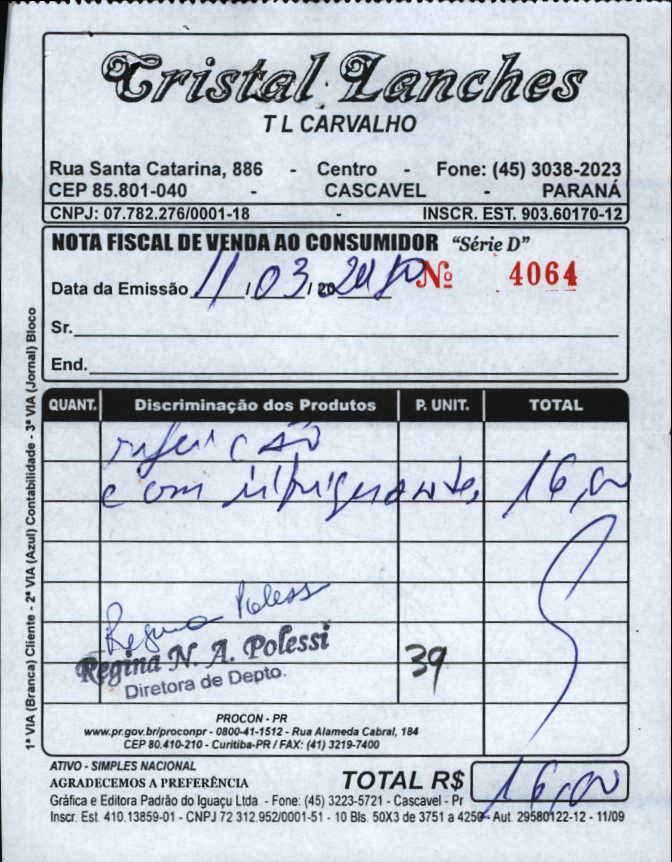 Cristal Lanches
T L CARVALHO
Rua Santa Catarina, 886 - Centro - Fone: (45) 3038-2023
CEP 85.801-040 - CASCAVEL - PARANÁ
CNPJ: 07.782.276/0001-18 - INSCR. EST. 903.60170-12
NOTA FISCAL DE VENDA AO CONSUMIDOR "Série D"
Data da Emissão 11 / 03 / 20 2010 Nº 4064
Sr.
End.
QUANT. Discriminação dos Produtos P. UNIT. TOTAL
refeição
e com refrigerante, 16,00
Regina Polessi
Regina N. A. Polessi
Diretora de Depto.
39
PROCON - PR
www.pr.gov.br/proconpr - 0800-41-1512 - Rua Alameda Cabral, 184
CEP 80.410-210 - Curitiba-PR / FAX: (41) 3219-7400
1ª VIA (Branca) Cliente - 2ª VIA (Azul) Contabilidade - 3ª VIA (Jornal) Bloco
ATIVO - SIMPLES NACIONAL
AGRADECEMOS A PREFERÊNCIA
TOTAL R$ 16,00
Gráfica e Editora Padrão do Iguaçu Ltda. - Fone: (45) 3223-5721 - Cascavel - Pr
Inscr. Est. 410.13859-01 - CNPJ 72.312.952/0001-51 - 10 Bls. 50X3 de 3751 a 4250 - Aut. 29580122-12 - 11/09